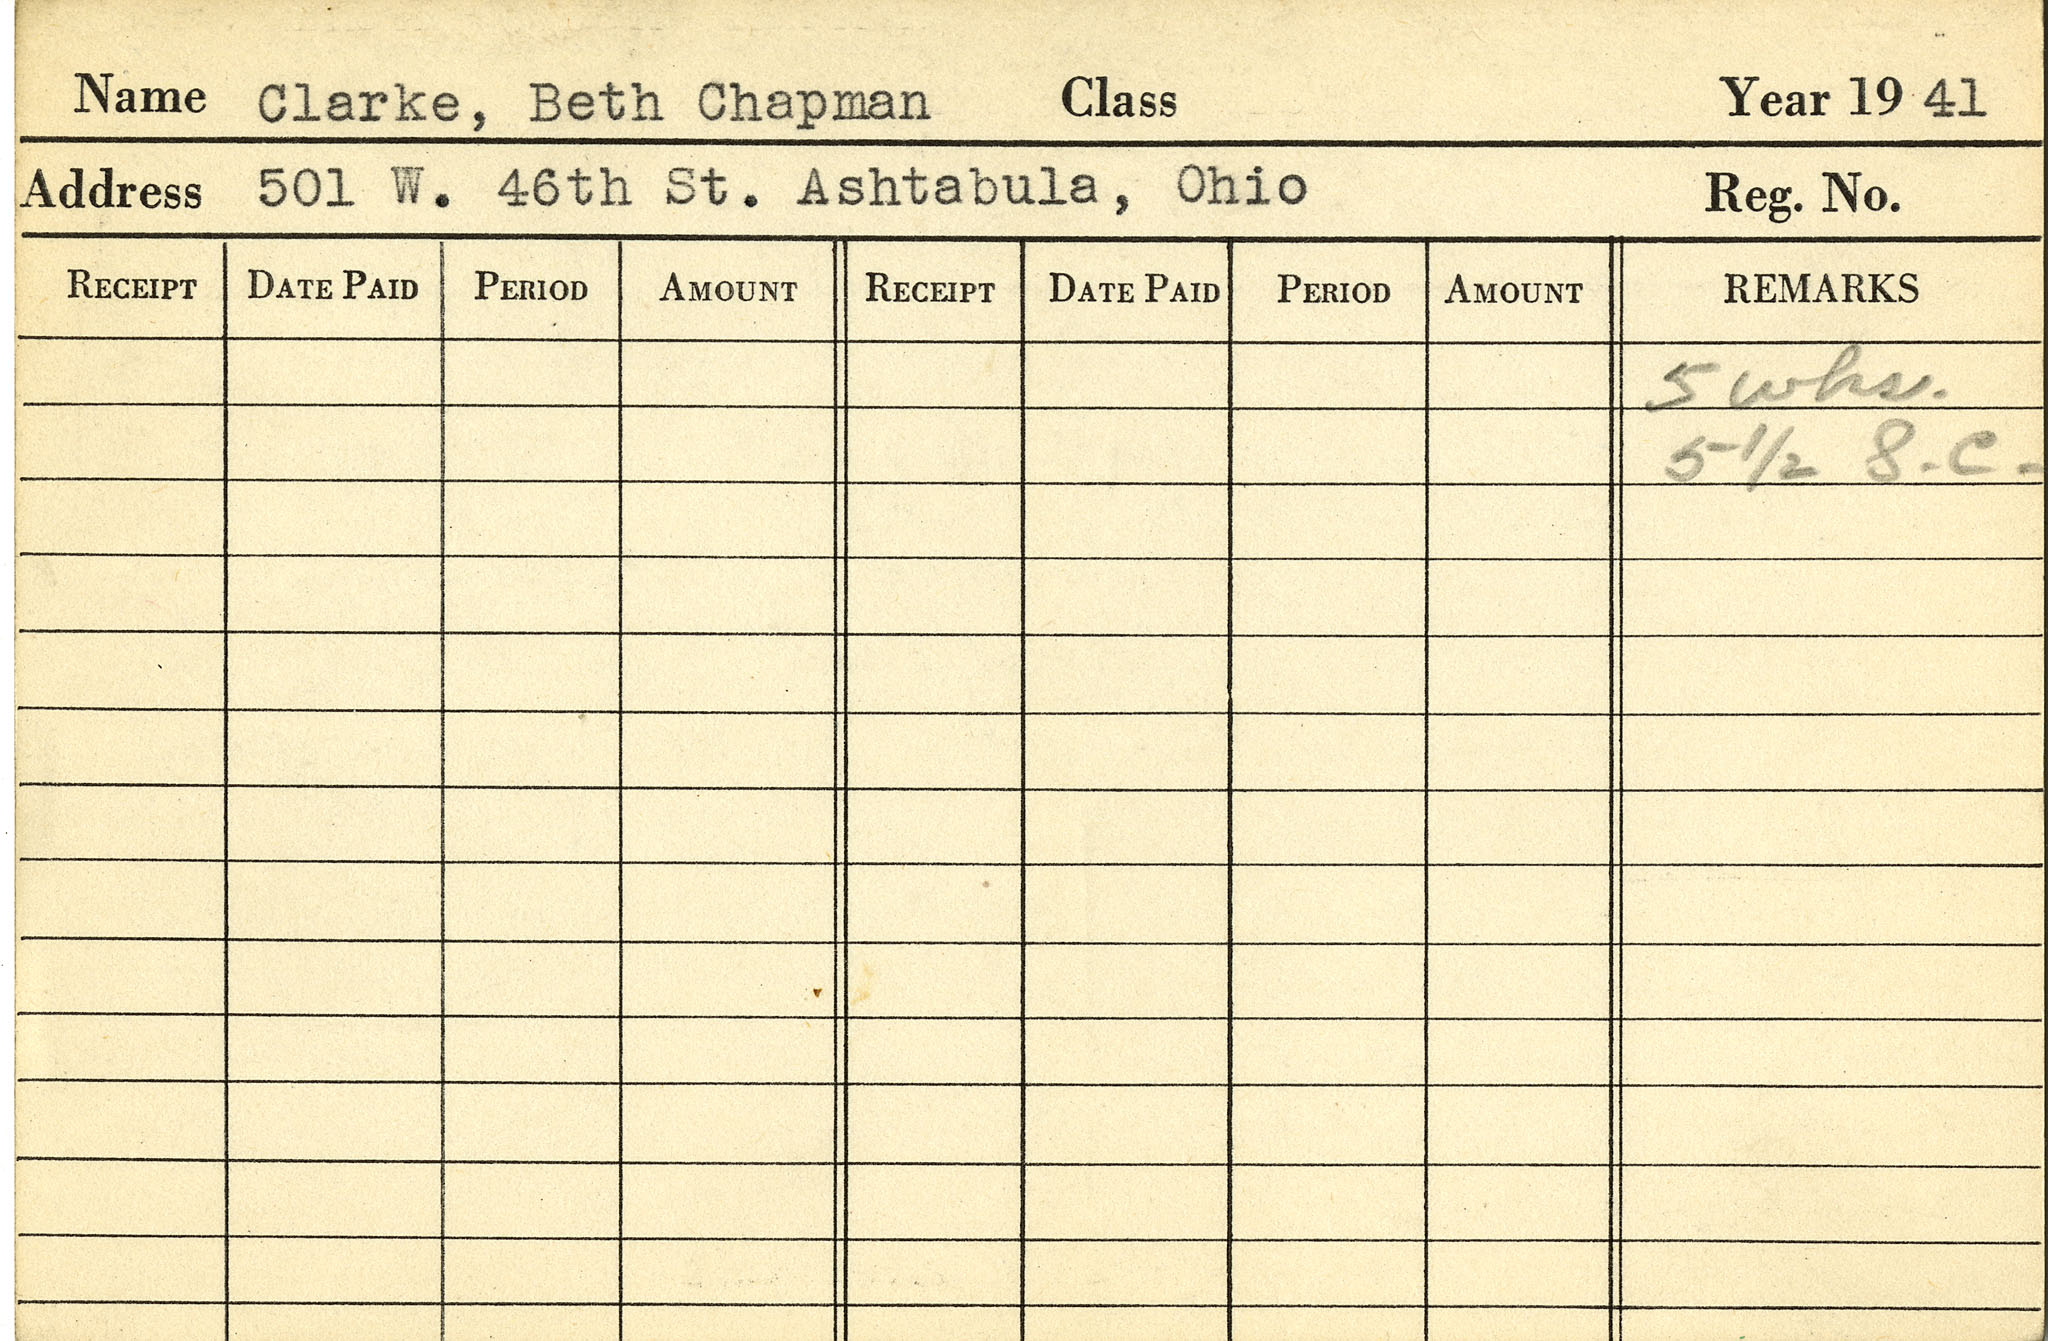 Name Clarke, Beth Chapman Class Year 19 41
Address 501 W. 46th St. Ashtabula, Ohio Reg. No.
RECEIPT DATE PAID PERIOD AMOUNT RECEIPT DATE PAID PERIOD AMOUNT REMARKS
5 wks.
5 1/2 S.C.